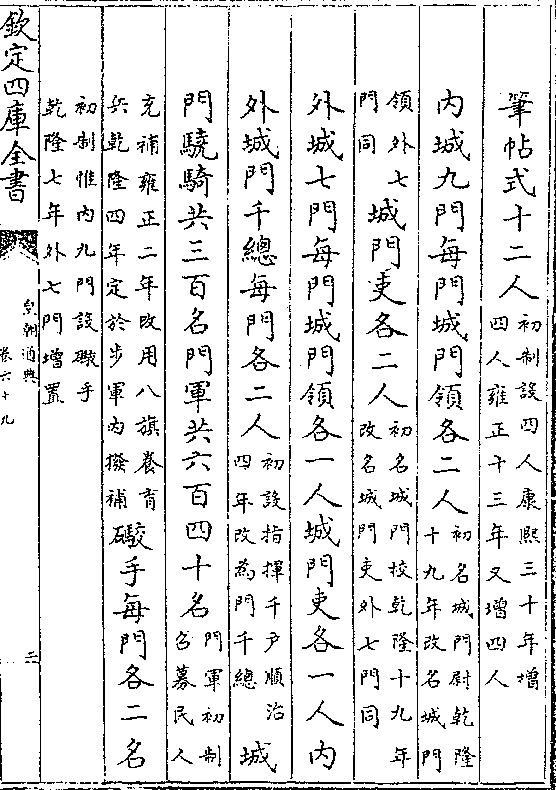 筆帖式十二人初制設四人康熙三十年增四人雍正十三年又增四人
内城九門每門城門領各二人初名城門尉乾隆十九年改名城門
領外七門同城門吏各二人初名城門校乾隆十九年改名城門吏外七門同
外城七門每門城門領各一人城門吏各一人内
外城門千總每門各二人初設指揮千戸順治四年改為門千總城
門驍騎共三百名門軍共六百四十名門軍初制召募民人
充補雍正二年改用八旗養育兵乾隆四年定於步軍内撥補礮手每門各二名
初制惟内九門設礮手乾隆七年外七門增置
欽定四庫全書
皇朝通典
卷六十九
三